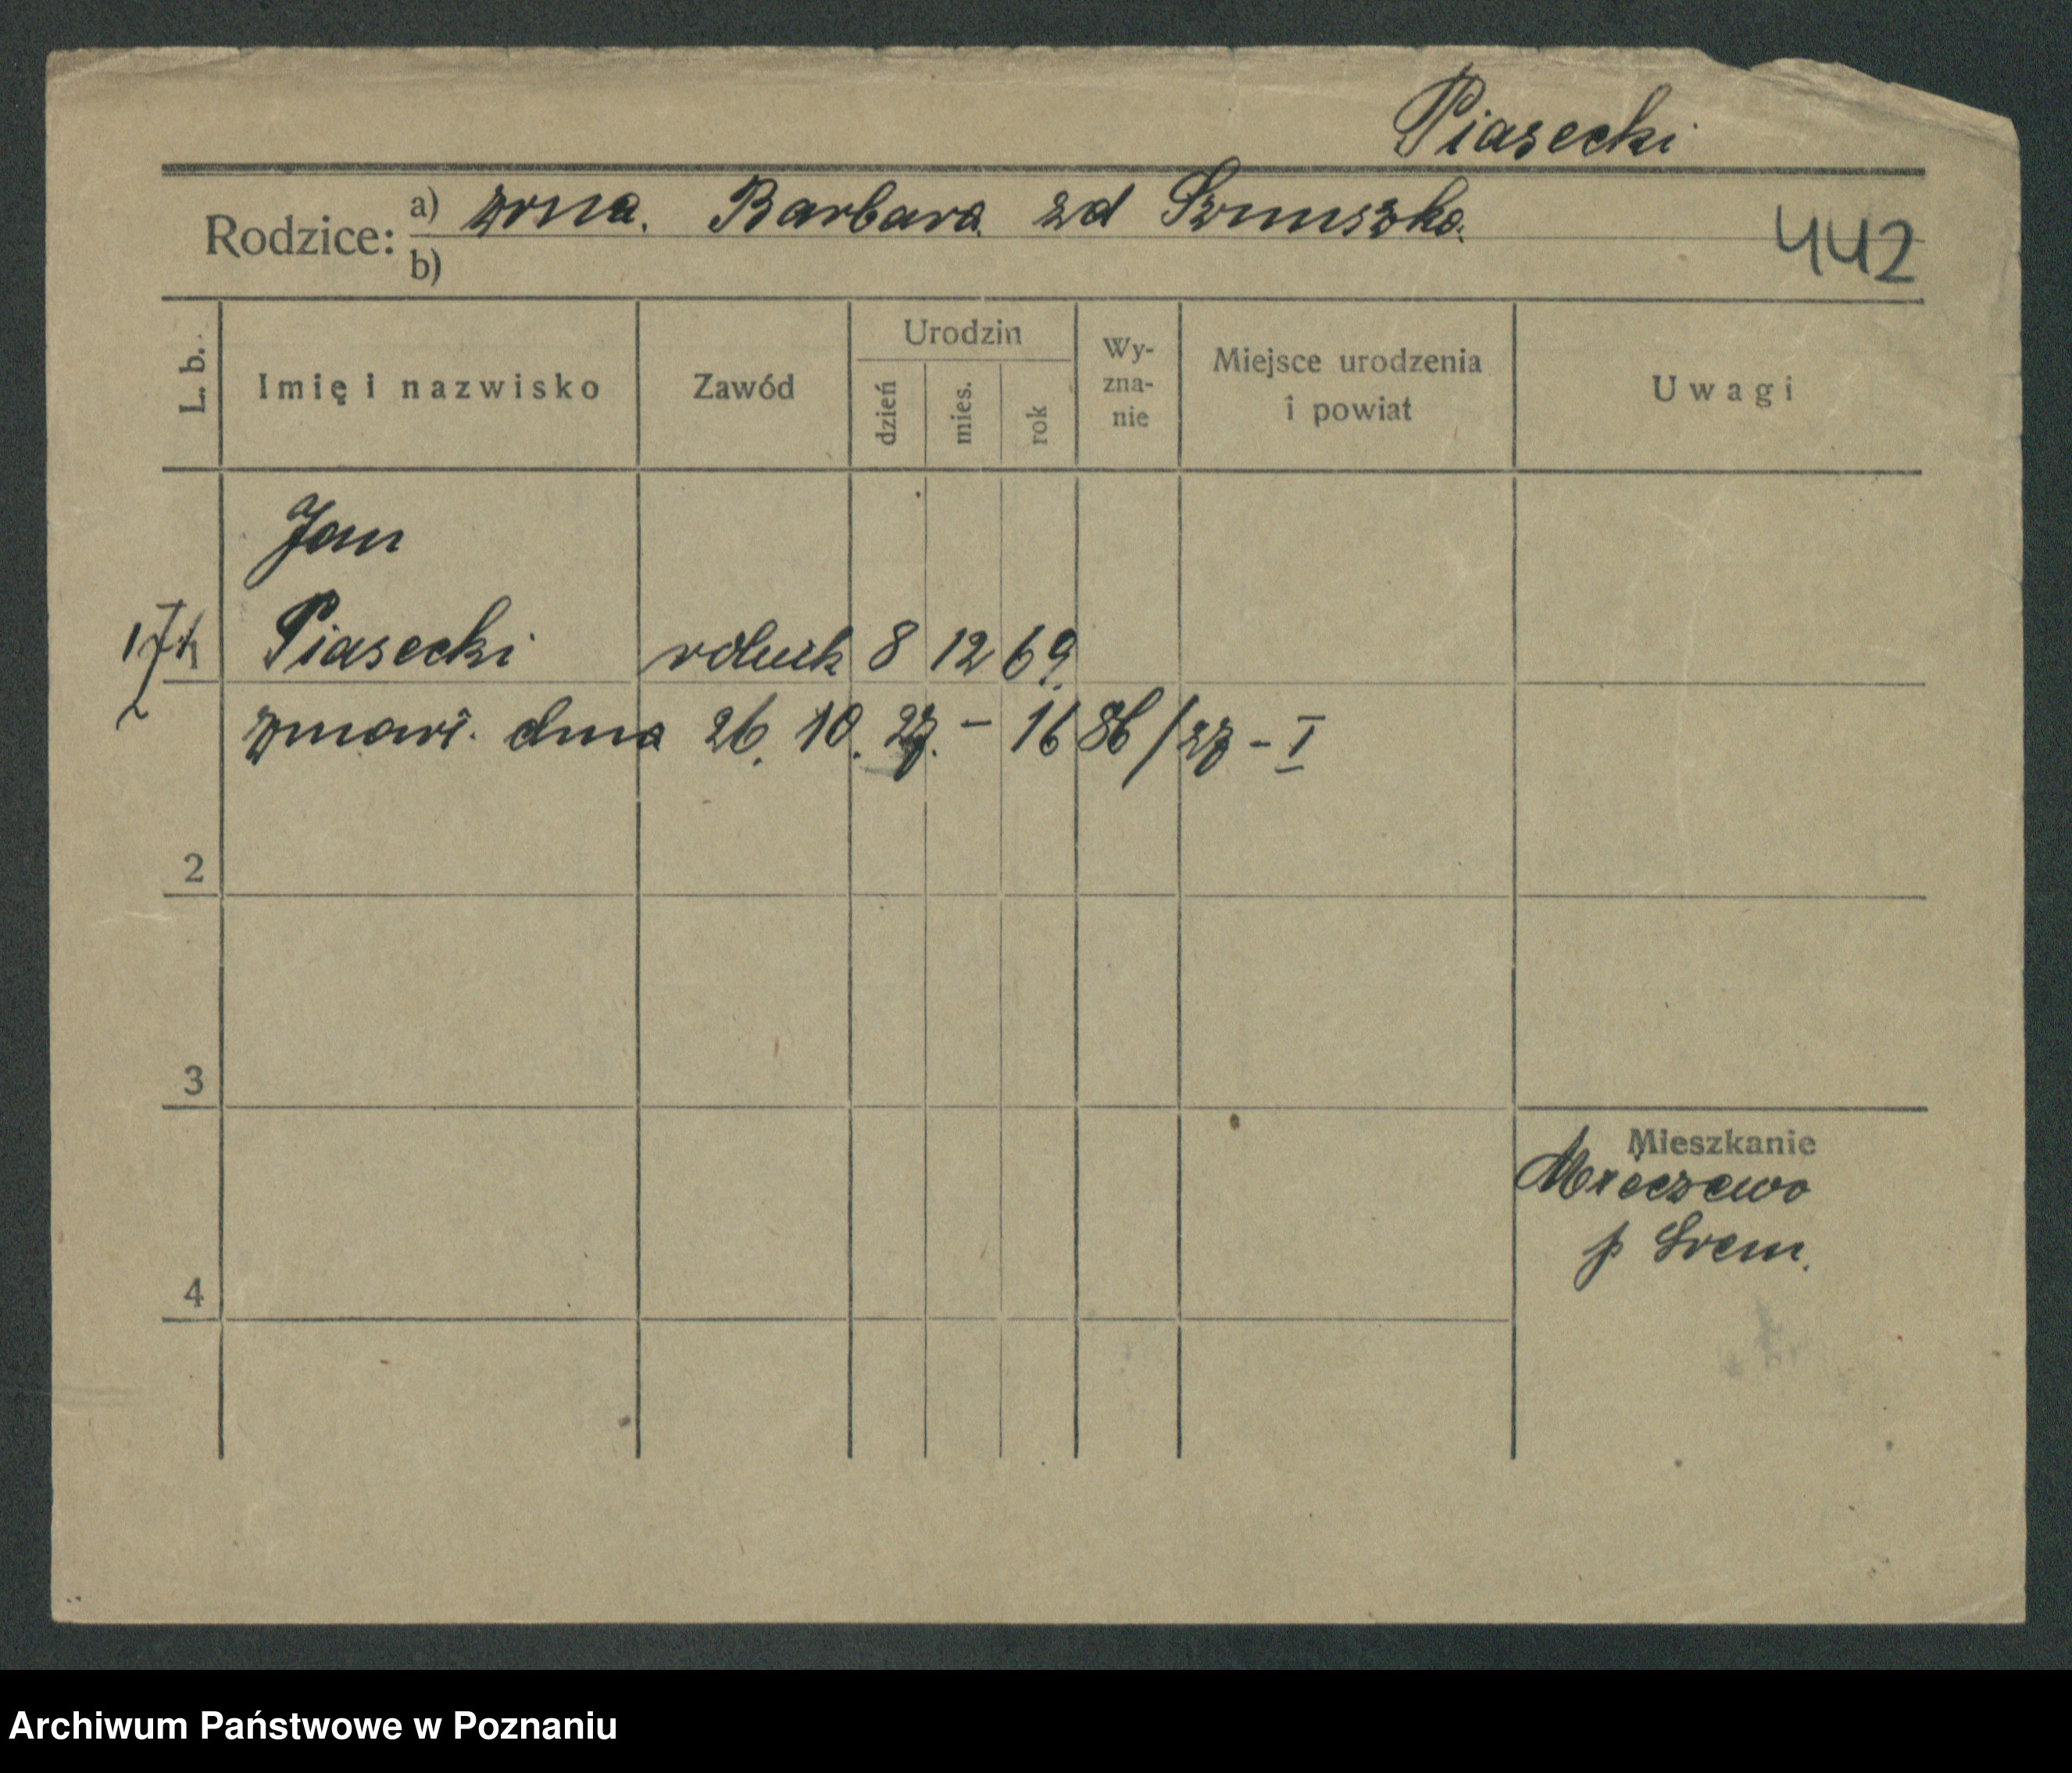 Piasecki
Rodzice: a) żona. Barbara zd
b)
442
L. b. Imię i nazwisko Zawód Urodzin dzień mies. rok Wy-zna-nie Miejsce urodzenia i powiat Uwagi
Jan
Piasecki rolnik 8 12 69.
zmarł. dnia 26. 10. 27. - 1686/27 - I
2
3
Mieszkanie
p Śrem.
4
Archiwum Państwowe w Poznaniu